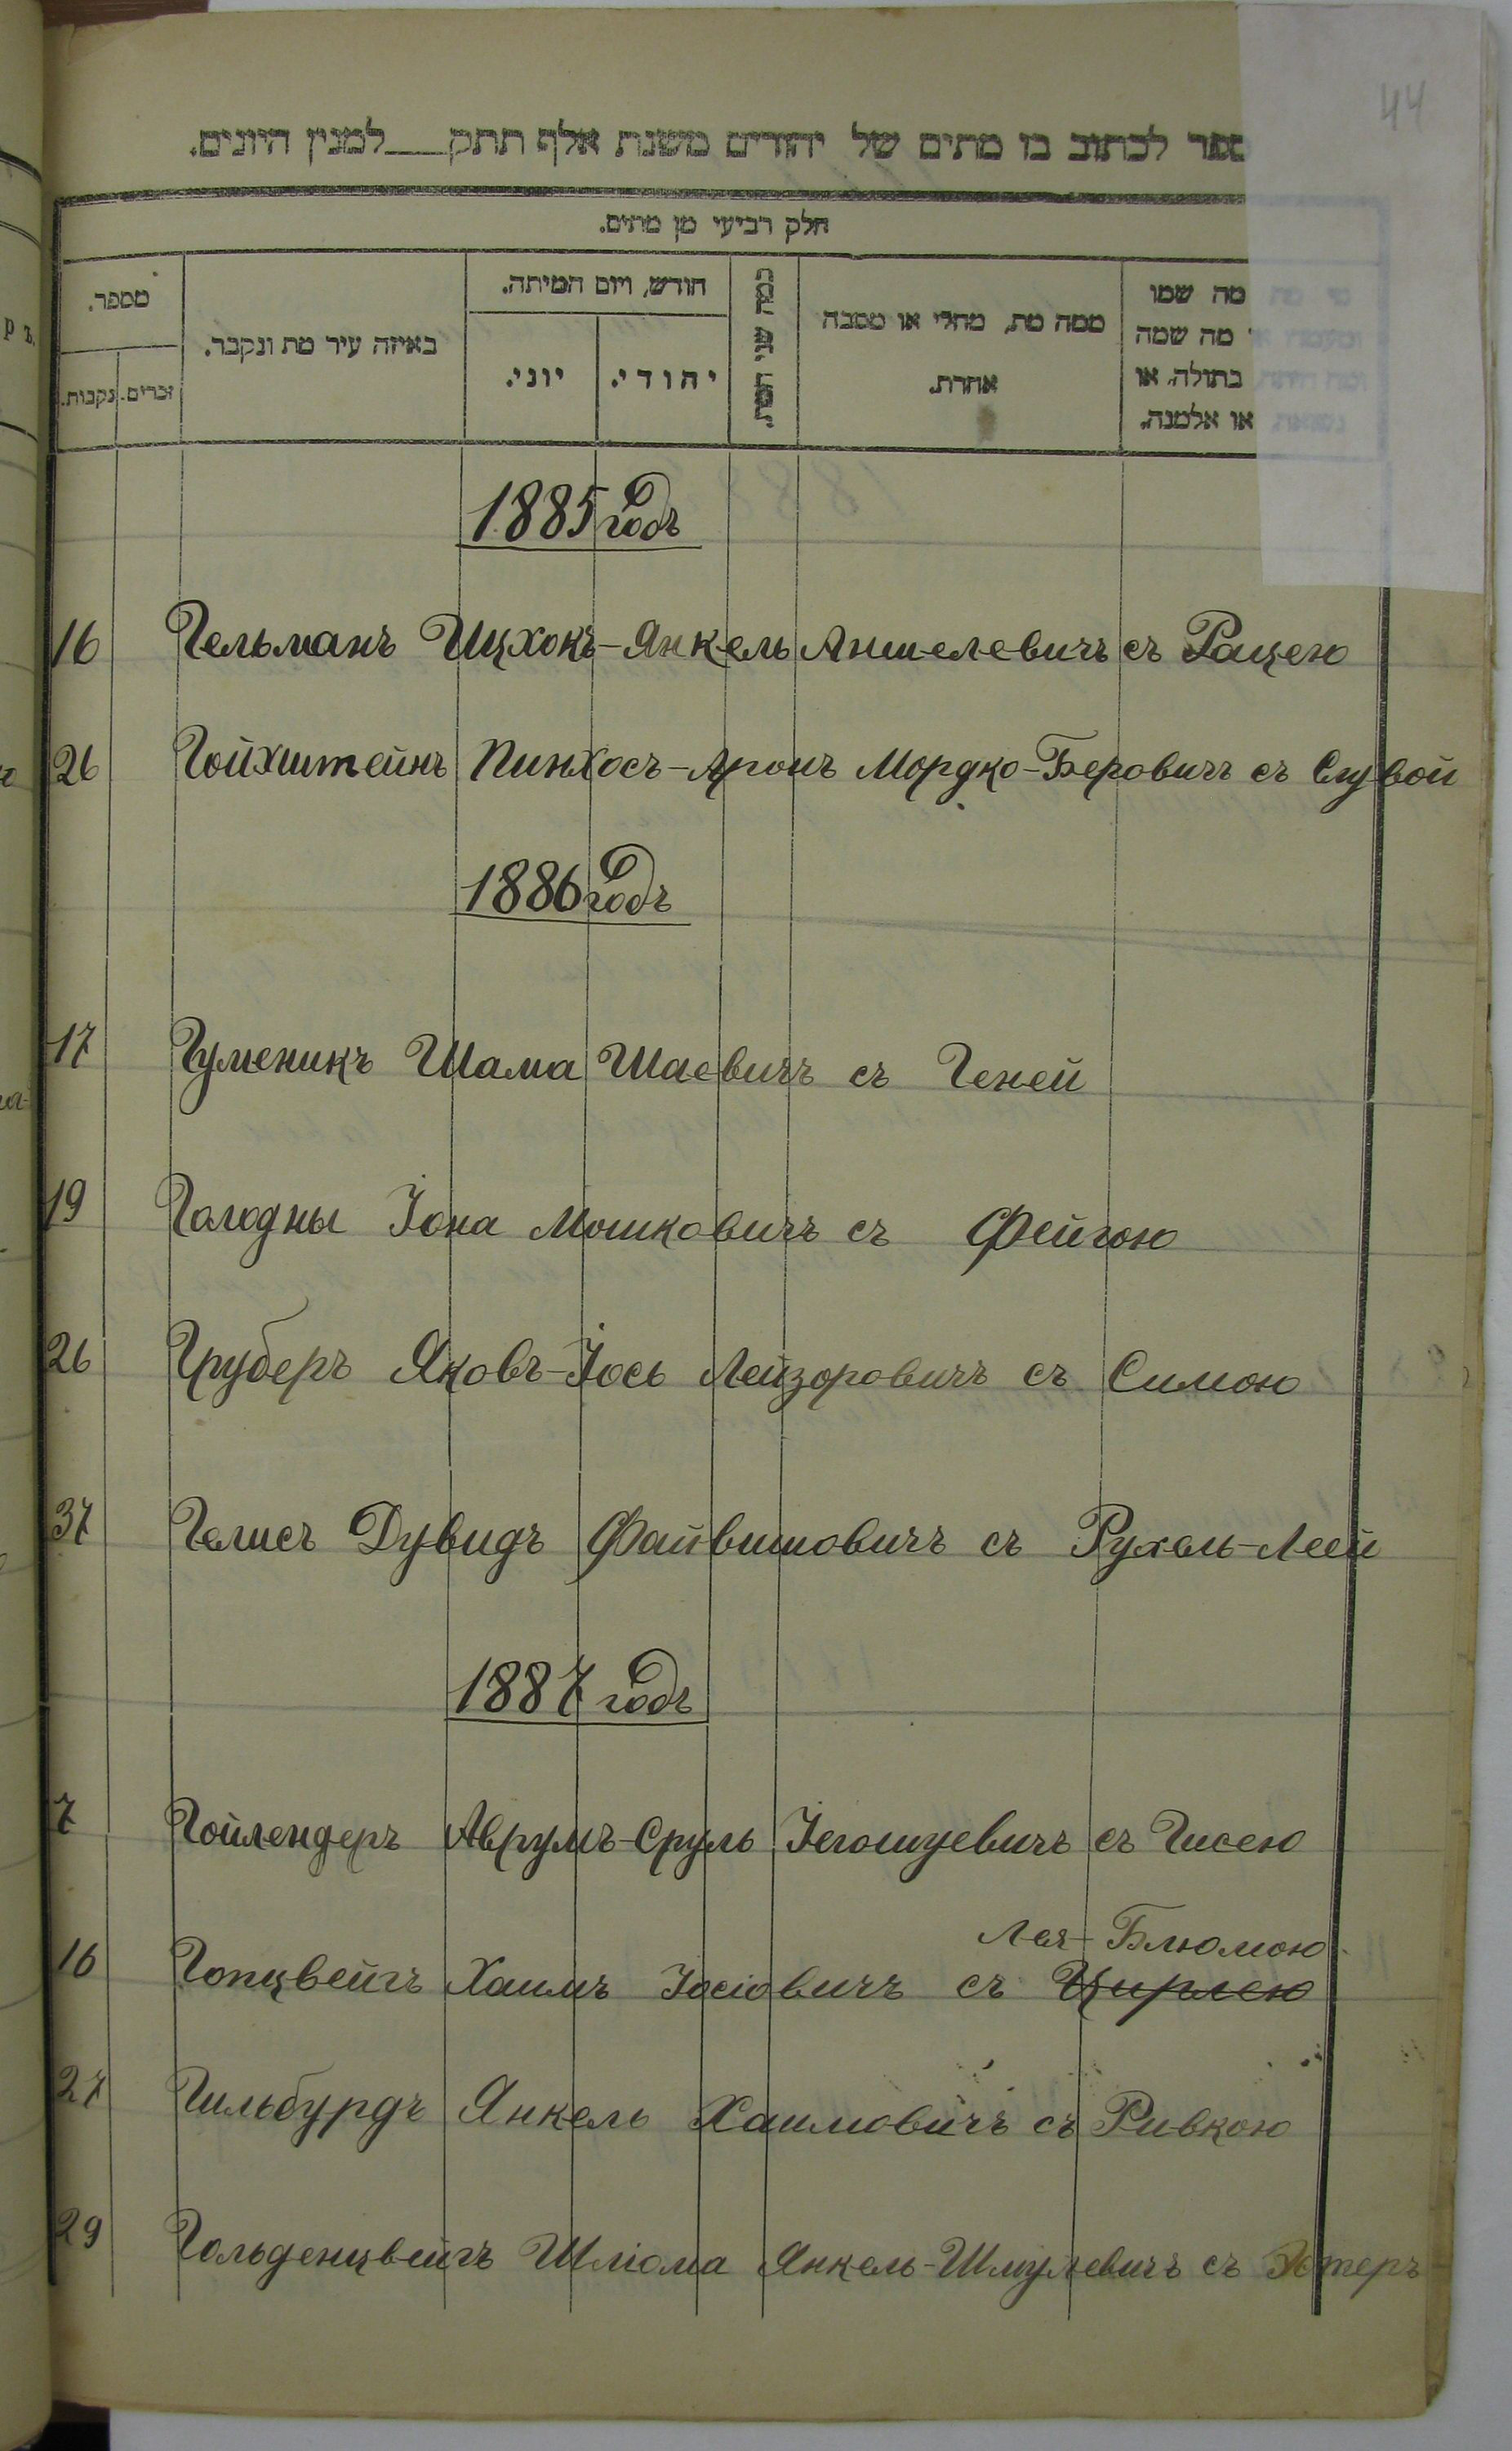 44
ספר לכתוב בו מתים של יהודים משנת אלף תתק למנין היונים.
חלק רביעי מן מתים.
מה שמו
מה שמה
בתולה, או
או אלמנה.
ממה מת, מחלי או מסבה
אחרת.
כמה שני המת.
חודש, ויום המיתה.
יהודי.
יוני.
באיזה עיר מת ונקבר.
מספר.
זכרים.
נקבות.
1885 годъ
16 Гельманъ Ицхокъ-Янкель Аншелевичъ съ Рацею
26 Гойхштейнъ Пинхосъ-Аронъ Мордко-Беровичъ съ Слувой
1886 годъ
17 Гуменикъ Шама Шаевичъ съ Геней
19 Голодны Іона Мошковичъ съ Фейгою
26 Груберъ Яковъ-Іось Лейзоровичъ съ Симою
37 Гелисъ Дувидъ Файвишовичъ съ Рухель-Леей
1887 годъ
7 Гойлендеръ Аврумъ-Сруль Іегошуевичъ съ Гисею
Лея-Блюмою
16 Гопцвейгъ Хаимъ Іосіовичъ съ Цирлею
27 Гильбурдъ Янкель Хаимовичъ съ Ривкою
29 Гольденцвейгъ Шліома Янкель-Шмулевичъ съ Эстеръ